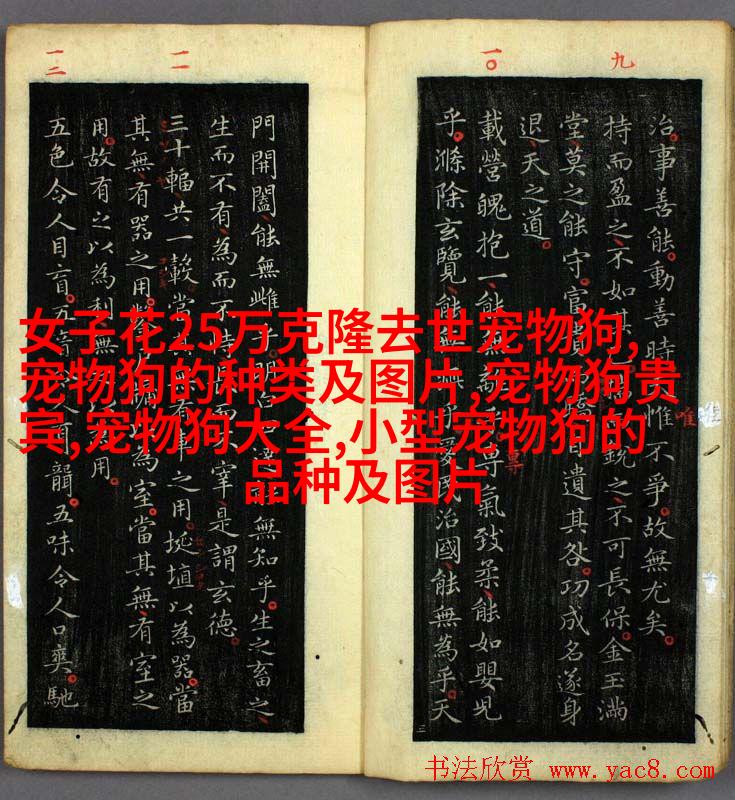 女子花25万克隆去世宠物狗,
宠物狗的种类及图片,宠物狗贵
宾,宠物狗大全,小型宠物狗的
品种及图片
九
一〇
治。事善能。動善時。惟不爭。故無尤矣。
持而盈之、不如其銳之、不可長保。金玉滿
堂、莫之能守。富自遺其咎。功成名遂身
退、天之道。
載營魄抱一、能無專氣致柔、能如嬰兒
乎。滌除玄覽、能無國治國、能無為乎。天
唯
一一
一二
門開闔、能無雌乎。無知乎。生之畜之、
生而不有、為而不宰、是謂玄德。
三十輻、共一轂、當其車之用。埏埴以為器。當
其無、有器之用。為室。當其無、有室之
用。故有之以為利、無用。
五色令人目盲。五音聾。五味令人口爽。馳
书法欣赏 www.yac8.com